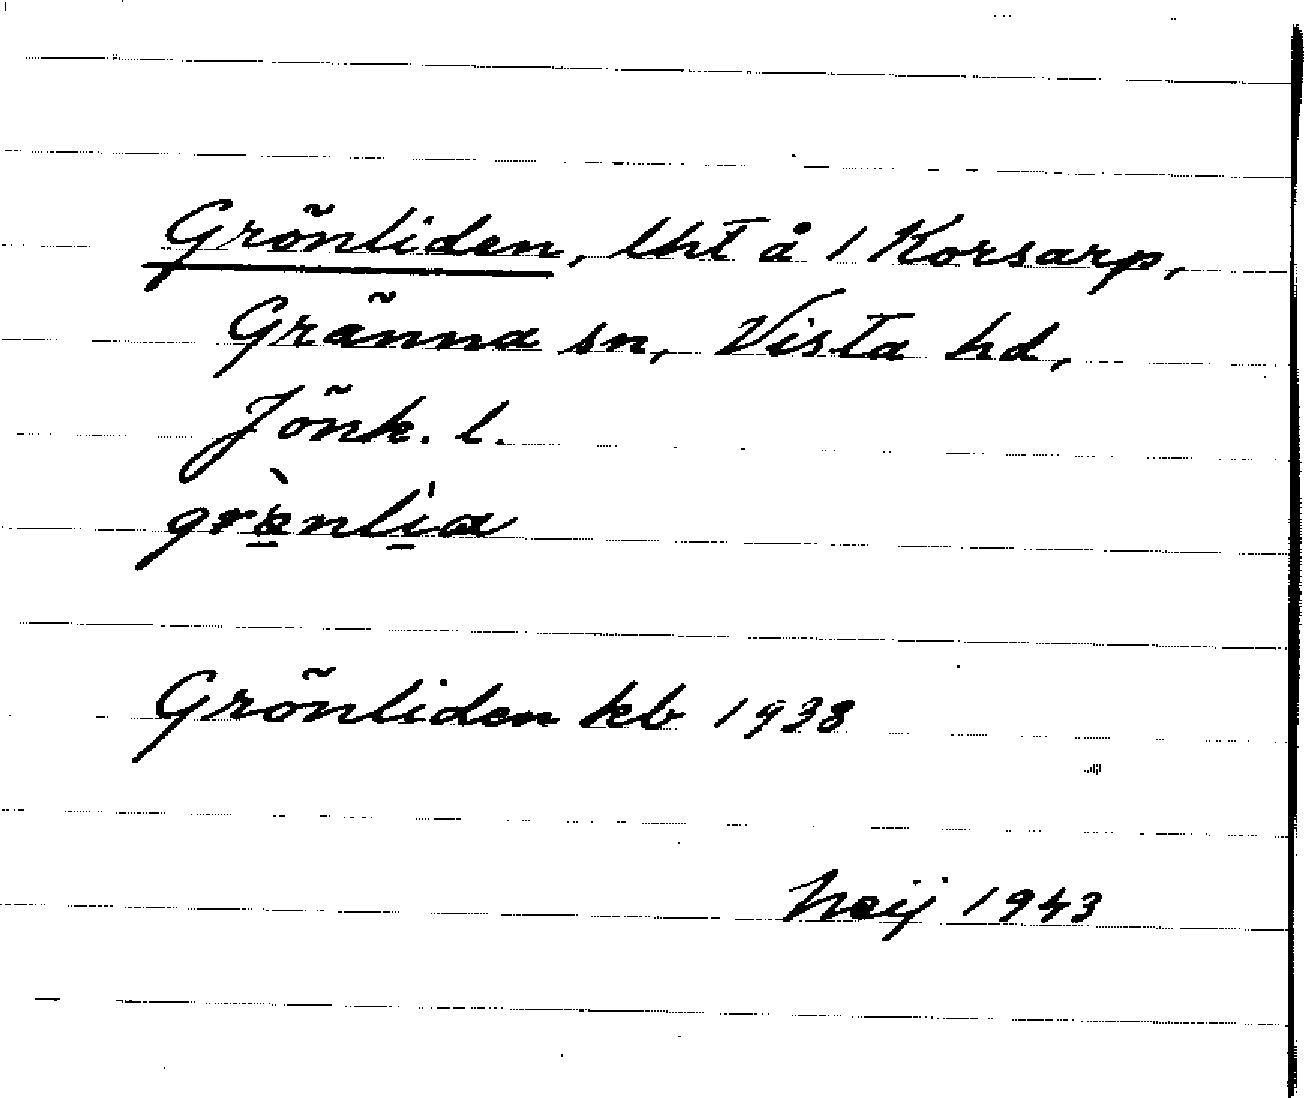 Grönliden, lht å 1 Korsarp,
Gränna sn, Vista hd,
Jönk. l.
Grönliden kb 1938
Neij 1943